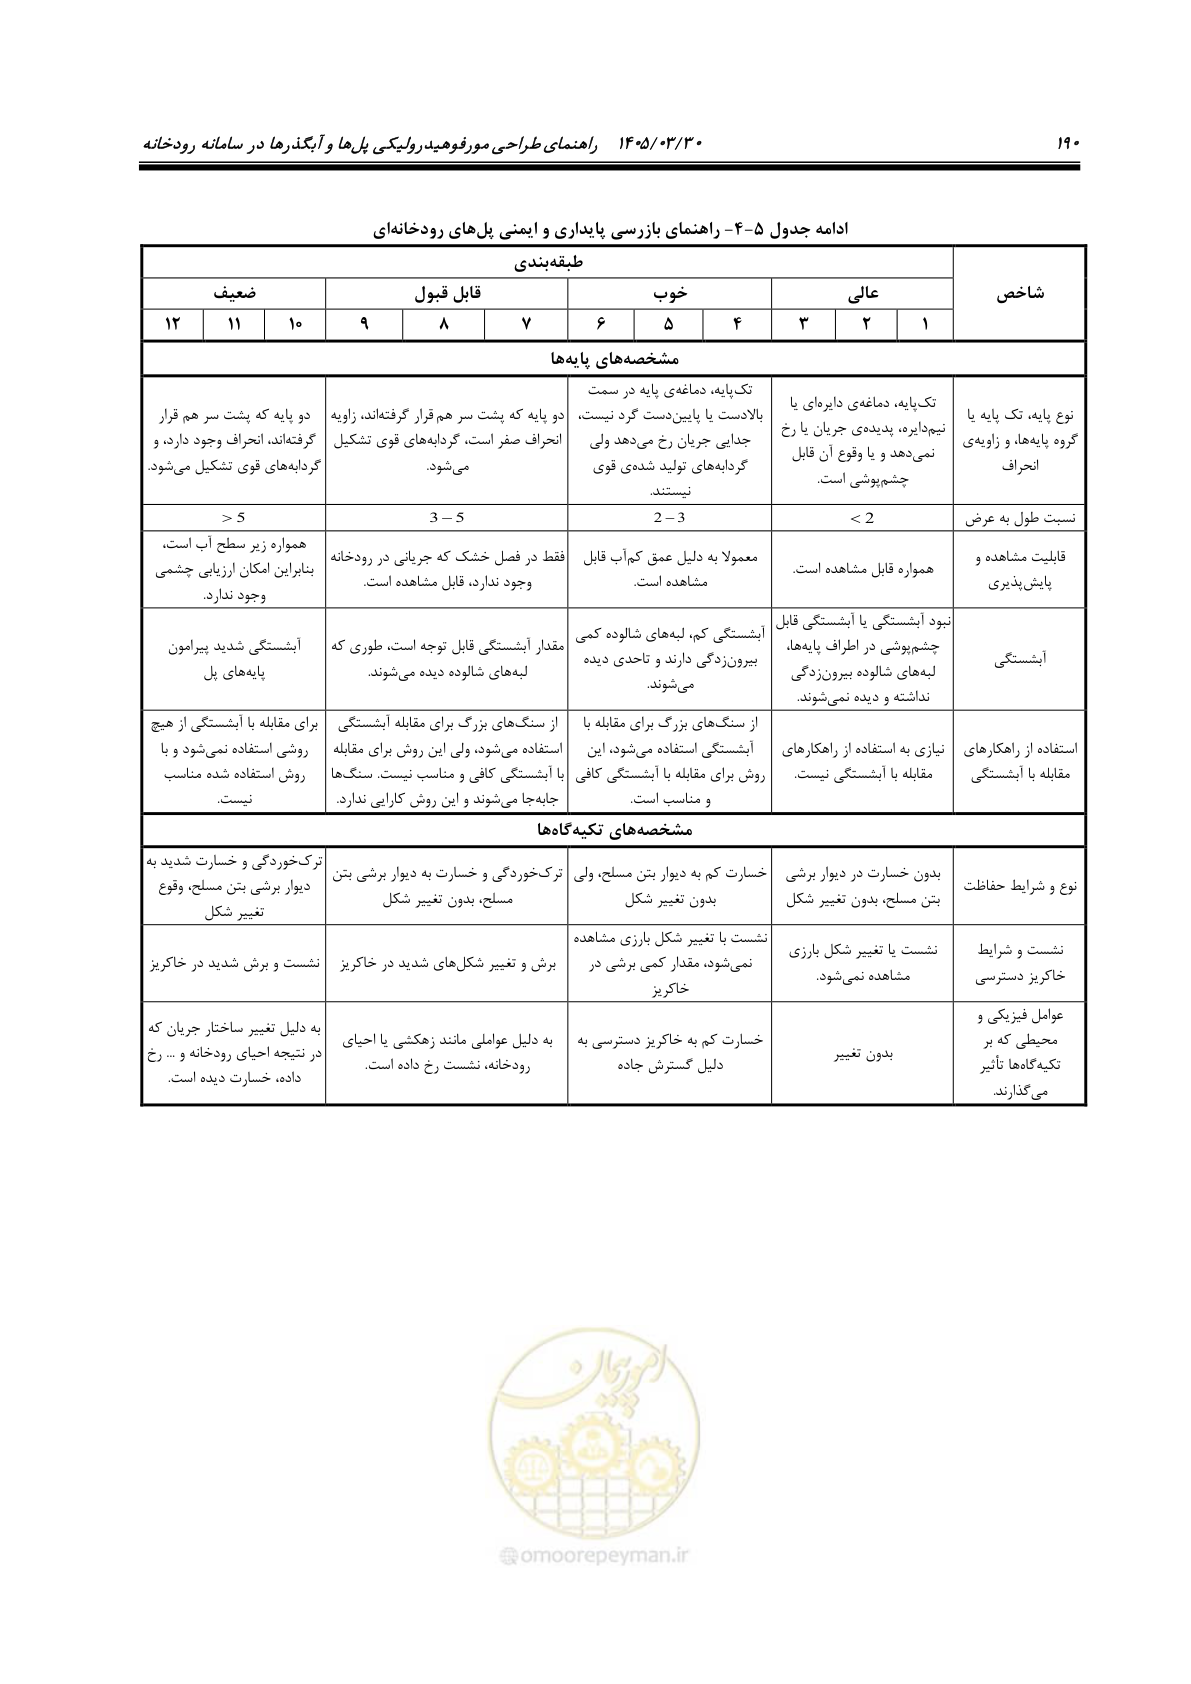 ۱۹۰
۱۴۰۵/۰۳/۳۰ راهنمای طراحی مورفوهیدرولیکی پل‌ها و آبگذرها در سامانه رودخانه
ادامه جدول ۵-۴- راهنمای بازرسی پایداری و ایمنی پل‌های رودخانه‌ای
شاخص
طبقه‌بندی
عالی
خوب
قابل قبول
ضعیف
۱ ۲ ۳ ۴ ۵ ۶ ۷ ۸ ۹ ۱۰ ۱۱ ۱۲
مشخصه‌های پایه‌ها
نوع پایه، تک پایه یا
گروه پایه‌ها، و زاویه‌ی
انحراف
تک‌پایه، دماغه‌ی دایره‌ای یا
نیم‌دایره، پدیده‌ی جریان یا رخ
نمی‌دهد و یا وقوع آن قابل
چشم‌پوشی است.
تک‌پایه، دماغه‌ی پایه در سمت
بالادست یا پایین‌دست گرد نیست،
جدایی جریان رخ می‌دهد ولی
گردابه‌های تولید شده‌ی قوی
نیستند.
دو پایه که پشت سر هم قرار گرفته‌اند، زاویه
انحراف صفر است، گردابه‌های قوی تشکیل
می‌شود.
دو پایه که پشت سر هم قرار
گرفته‌اند، انحراف وجود دارد، و
گردابه‌های قوی تشکیل می‌شود.
نسبت طول به عرض
< 2
2 – 3
3 – 5
> 5
قابلیت مشاهده و
پایش‌پذیری
همواره قابل مشاهده است.
معمولا به دلیل عمق کم‌آب قابل
مشاهده است.
فقط در فصل خشک که جریانی در رودخانه
وجود ندارد، قابل مشاهده است.
همواره زیر سطح آب است،
بنابراین امکان ارزیابی چشمی
وجود ندارد.
آبشستگی
نبود آبشستگی یا آبشستگی قابل
چشم‌پوشی در اطراف پایه‌ها،
لبه‌های شالوده بیرون‌زدگی
نداشته و دیده نمی‌شوند.
آبشستگی کم، لبه‌های شالوده کمی
بیرون‌زدگی دارند و تاحدی دیده
می‌شوند.
مقدار آبشستگی قابل توجه است، طوری که
لبه‌های شالوده دیده می‌شوند.
آبشستگی شدید پیرامون
پایه‌های پل
استفاده از راهکارهای
مقابله با آبشستگی
نیازی به استفاده از راهکارهای
مقابله با آبشستگی نیست.
از سنگ‌های بزرگ برای مقابله با
آبشستگی استفاده می‌شود، این
روش برای مقابله با آبشستگی کافی
و مناسب است.
از سنگ‌های بزرگ برای مقابله آبشستگی
استفاده می‌شود، ولی این روش برای مقابله
با آبشستگی کافی و مناسب نیست. سنگ‌ها
جابه‌جا می‌شوند و این روش کارایی ندارد.
برای مقابله با آبشستگی از هیچ
روشی استفاده نمی‌شود و با
روش استفاده شده مناسب
نیست.
مشخصه‌های تکیه‌گاه‌ها
نوع و شرایط حفاظت
بدون خسارت در دیوار برشی
بتن مسلح، بدون تغییر شکل
خسارت کم به دیوار بتن مسلح، ولی
بدون تغییر شکل
ترک‌خوردگی و خسارت به دیوار برشی بتن
مسلح، بدون تغییر شکل
ترک‌خوردگی و خسارت شدید به
دیوار برشی بتن مسلح، وقوع
تغییر شکل
نشست و شرایط
خاکریز دسترسی
نشست یا تغییر شکل بارزی
مشاهده نمی‌شود.
نشست با تغییر شکل بارزی مشاهده
نمی‌شود، مقدار کمی برشی در
خاکریز
برش و تغییر شکل‌های شدید در خاکریز
نشست و برش شدید در خاکریز
عوامل فیزیکی و
محیطی که بر
تکیه‌گاه‌ها تأثیر
می‌گذارند.
بدون تغییر
خسارت کم به خاکریز دسترسی به
دلیل گسترش جاده
به دلیل عواملی مانند زهکشی یا احیای
رودخانه، نشست رخ داده است.
به دلیل تغییر ساختار جریان که
در نتیجه احیای رودخانه و ... رخ
داده، خسارت دیده است.
امور پیمان
@omoorepeyman.ir